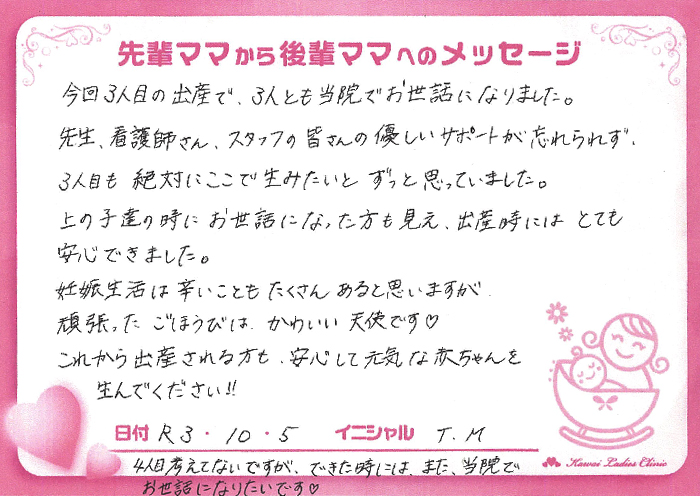 先輩ママから後輩ママへのメッセージ
今回3人目の出産で、3人とも当院でお世話になりました。
先生、看護師さん、スタッフの皆さんの優しいサポートが忘れられず、
3人目も絶対にここで生みたいとずっと思っていました。
上の子達の時にお世話になった方も見え、出産時にはとても
安心できました。
妊娠生活は辛いこともたくさんあると思いますが、
頑張ったごほうびは、かわいい天使です♡
これから出産される方も、安心して元気な赤ちゃんを
生んでください!!
日付 R3・10・5 イニシャル T.M
4人目考えてないですが、できた時には、また、当院で
お世話になりたいです♡
Kawai Ladies Clinic